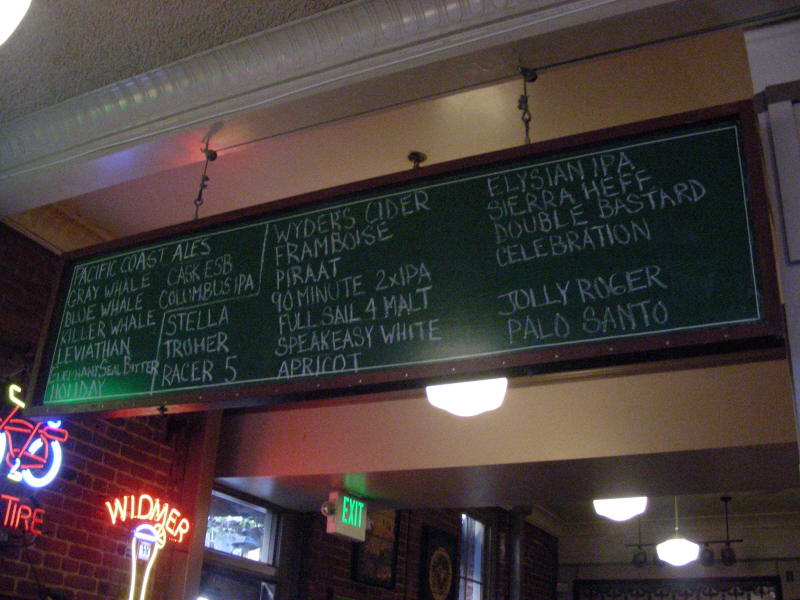 PACIFIC COAST ALES
GRAY WHALE
BLUE WHALE
KILLER WHALE
LEVIATHAN
ELEPHANT SEAL BITTER
HOLIDAY
CASK ESB
COLUMBUS IPA
STELLA
TRUMER
RACER 5
WYDER'S CIDER
FRAMBOISE
PIRAAT
90 MINUTE 2xIPA
FULL SAIL 4 MALT
SPEAKEASY WHITE
APRICOT
ELYSIAN IPA
SIERRA HEFE
DOUBLE BASTARD
CELEBRATION
JOLLY ROGER
PALO SANTO
TIRE
WIDMER
EXIT